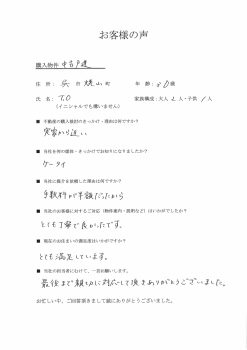 お客様の声
購入物件 中古戸建
住 所： 呉 市 焼山 町 年 齢： 30 歳
氏 名： T.O 家族構成：大人 2 人・子供 1 人
（イニシャルでも構いません）
■ 不動産の購入検討のきっかけ・理由は何ですか？
実家から近い
■ 当社を何の媒体・きっかけでお知りになりましたか？
ケータイ
■ 当社に仲介を依頼した理由は何ですか？
手数料が半額だったから
■ 当社のお客様に対するご対応（物件案内・説明など）はいかがでしたか？
とても丁寧で良かったです。
■ 現在のお住まいの満足度はいかがですか？
とても満足しています。
■ 当社の担当者にむけて、一言お願いします。
最後まで親切に対応して頂きありがとうございました。
お忙しい中、ご回答頂きまして誠にありがとうございました。